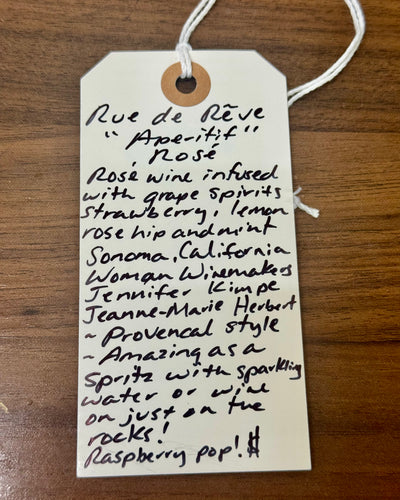 Rue de Rêve
"Aperitif"
Rosé
Rosé wine infused
with grape spirits
strawberry, lemon
rose hip and mint
Sonoma, California
Woman Winemakers
Jennifer Kimpe
Jeanne-Marie Herbert
~ Provencal style
~ Amazing as a
Spritz with sparkling
water or wine
on just on the
rocks!
Raspberry pop! $